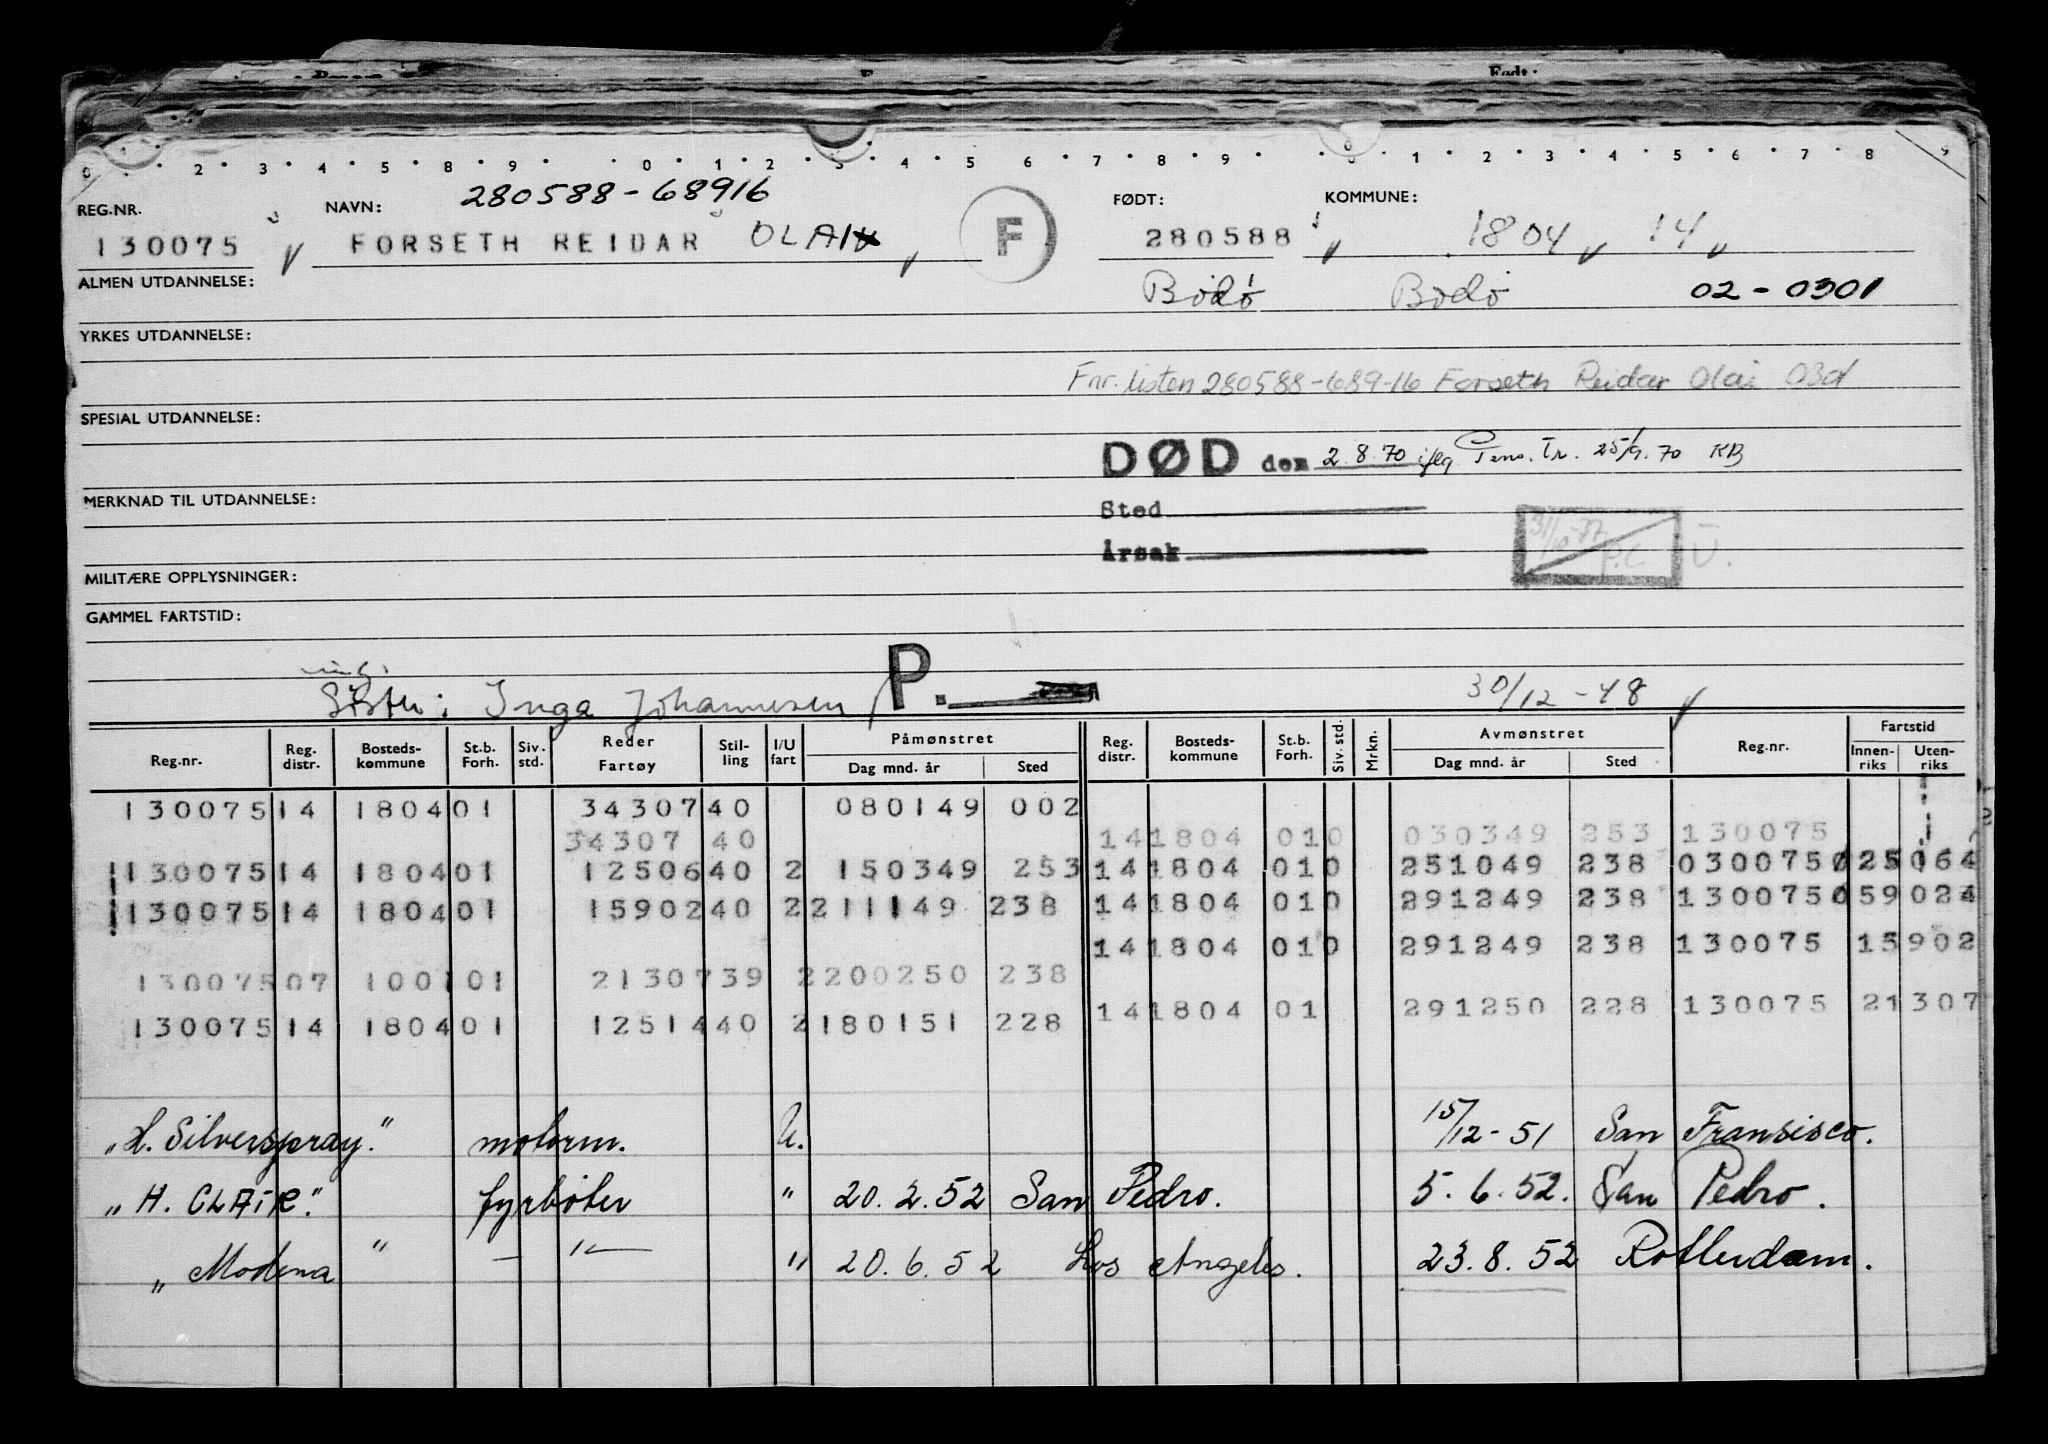 0 . 2 . 3 . 4 . 5 . 8 . 9 . . 0 . 1 . 2 . 3 . 4 . 5 6 . 7 . 8 . 9 . . 0 . 1 . 2 . 3 . 4 . 5 . 6 . 7 . 8 9
280588-68916
REG.NR. NAVN: FØDT: KOMMUNE:
130075 FORSETH REIDAR OLAI F 280588 1804 14
ALMEN UTDANNELSE: Bodø Bodø 02-0301
YRKES UTDANNELSE:
Fnr. listen 280588-689-16 Forseth Reidar Olai 03d
SPESIAL UTDANNELSE:
DØD den 2.8.70 iflg Pens. Tr. 25/9.70 KB
MERKNAD TIL UTDANNELSE: Sted
Årsak 31/10-77 P.C. U.
MILITÆRE OPPLYSNINGER:
GAMMEL FARTSTID:
Søster: Inga Johannesen P. 30/12-48
Reg.nr. Reg. distr. Bosteds-kommune St.b. Forh. Siv. std. Reder Fartøy Stil-ling I/U fart Påmønstret Dag mnd. år Sted Reg. distr. Bosteds-kommune St.b. Forh. Siv. std. Mrkn. Avmønstret Dag mnd. år Sted Reg.nr. Fartstid Innen-riks Uten-riks
130075 14 1804 01 34307 40 080149 002
34307 40 14 1804 010 030349 253 130075
130075 14 1804 01 12506 40 2 150349 253 14 1804 010 251049 238 030075 025064
130075 14 1804 01 15902 40 2 211149 238 14 1804 010 291249 238 130075 059024
14 1804 010 291249 238 130075 15902
130075 07 1001 01 21307 39 2 200250 238
14 1804 01 291250 228 130075 21307
130075 14 1804 01 12514 40 2 180151 228
„L. Silverspray." motorm. U. 15/12-51 San Fransisco.
„H. CLAIR." fyrbøter " 20.2.52 San Pedro. 5.6.52. San Pedro.
„Modena " — " — " 20.6.52 Los Angeles. 23.8.52 Rotterdam.